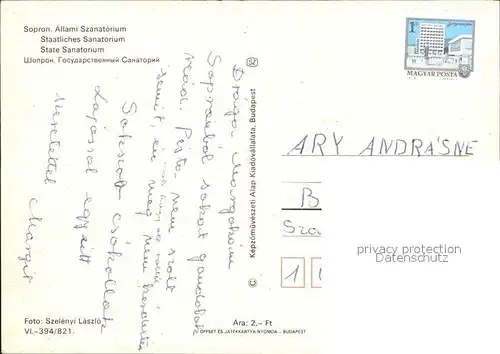 Sopron. Állami Szanatórium
Staatliches Sanatorium
State Sanatorium
Шопрон. Государственный Санаторий
1 Ft
MAGYAR POSTA
Drága Margókám
Sopronból sokat gondolok
reád. Pista nem szólt
semmit, én meg nem kérdeztem
Sokszor csókollak
Lajossal együtt
szeretettel Margit
Képzőművészeti Alap Kiadóvállalata, Budapest
ARY ANDRÁSNÉ
B
Sza
1
privacy protection
Datenschutz
Foto: Szelényi László
VI.-394/821.
Ára: 2,- Ft
OFFSET ÉS JÁTÉKKÁRTYA NYOMDA - BUDAPEST